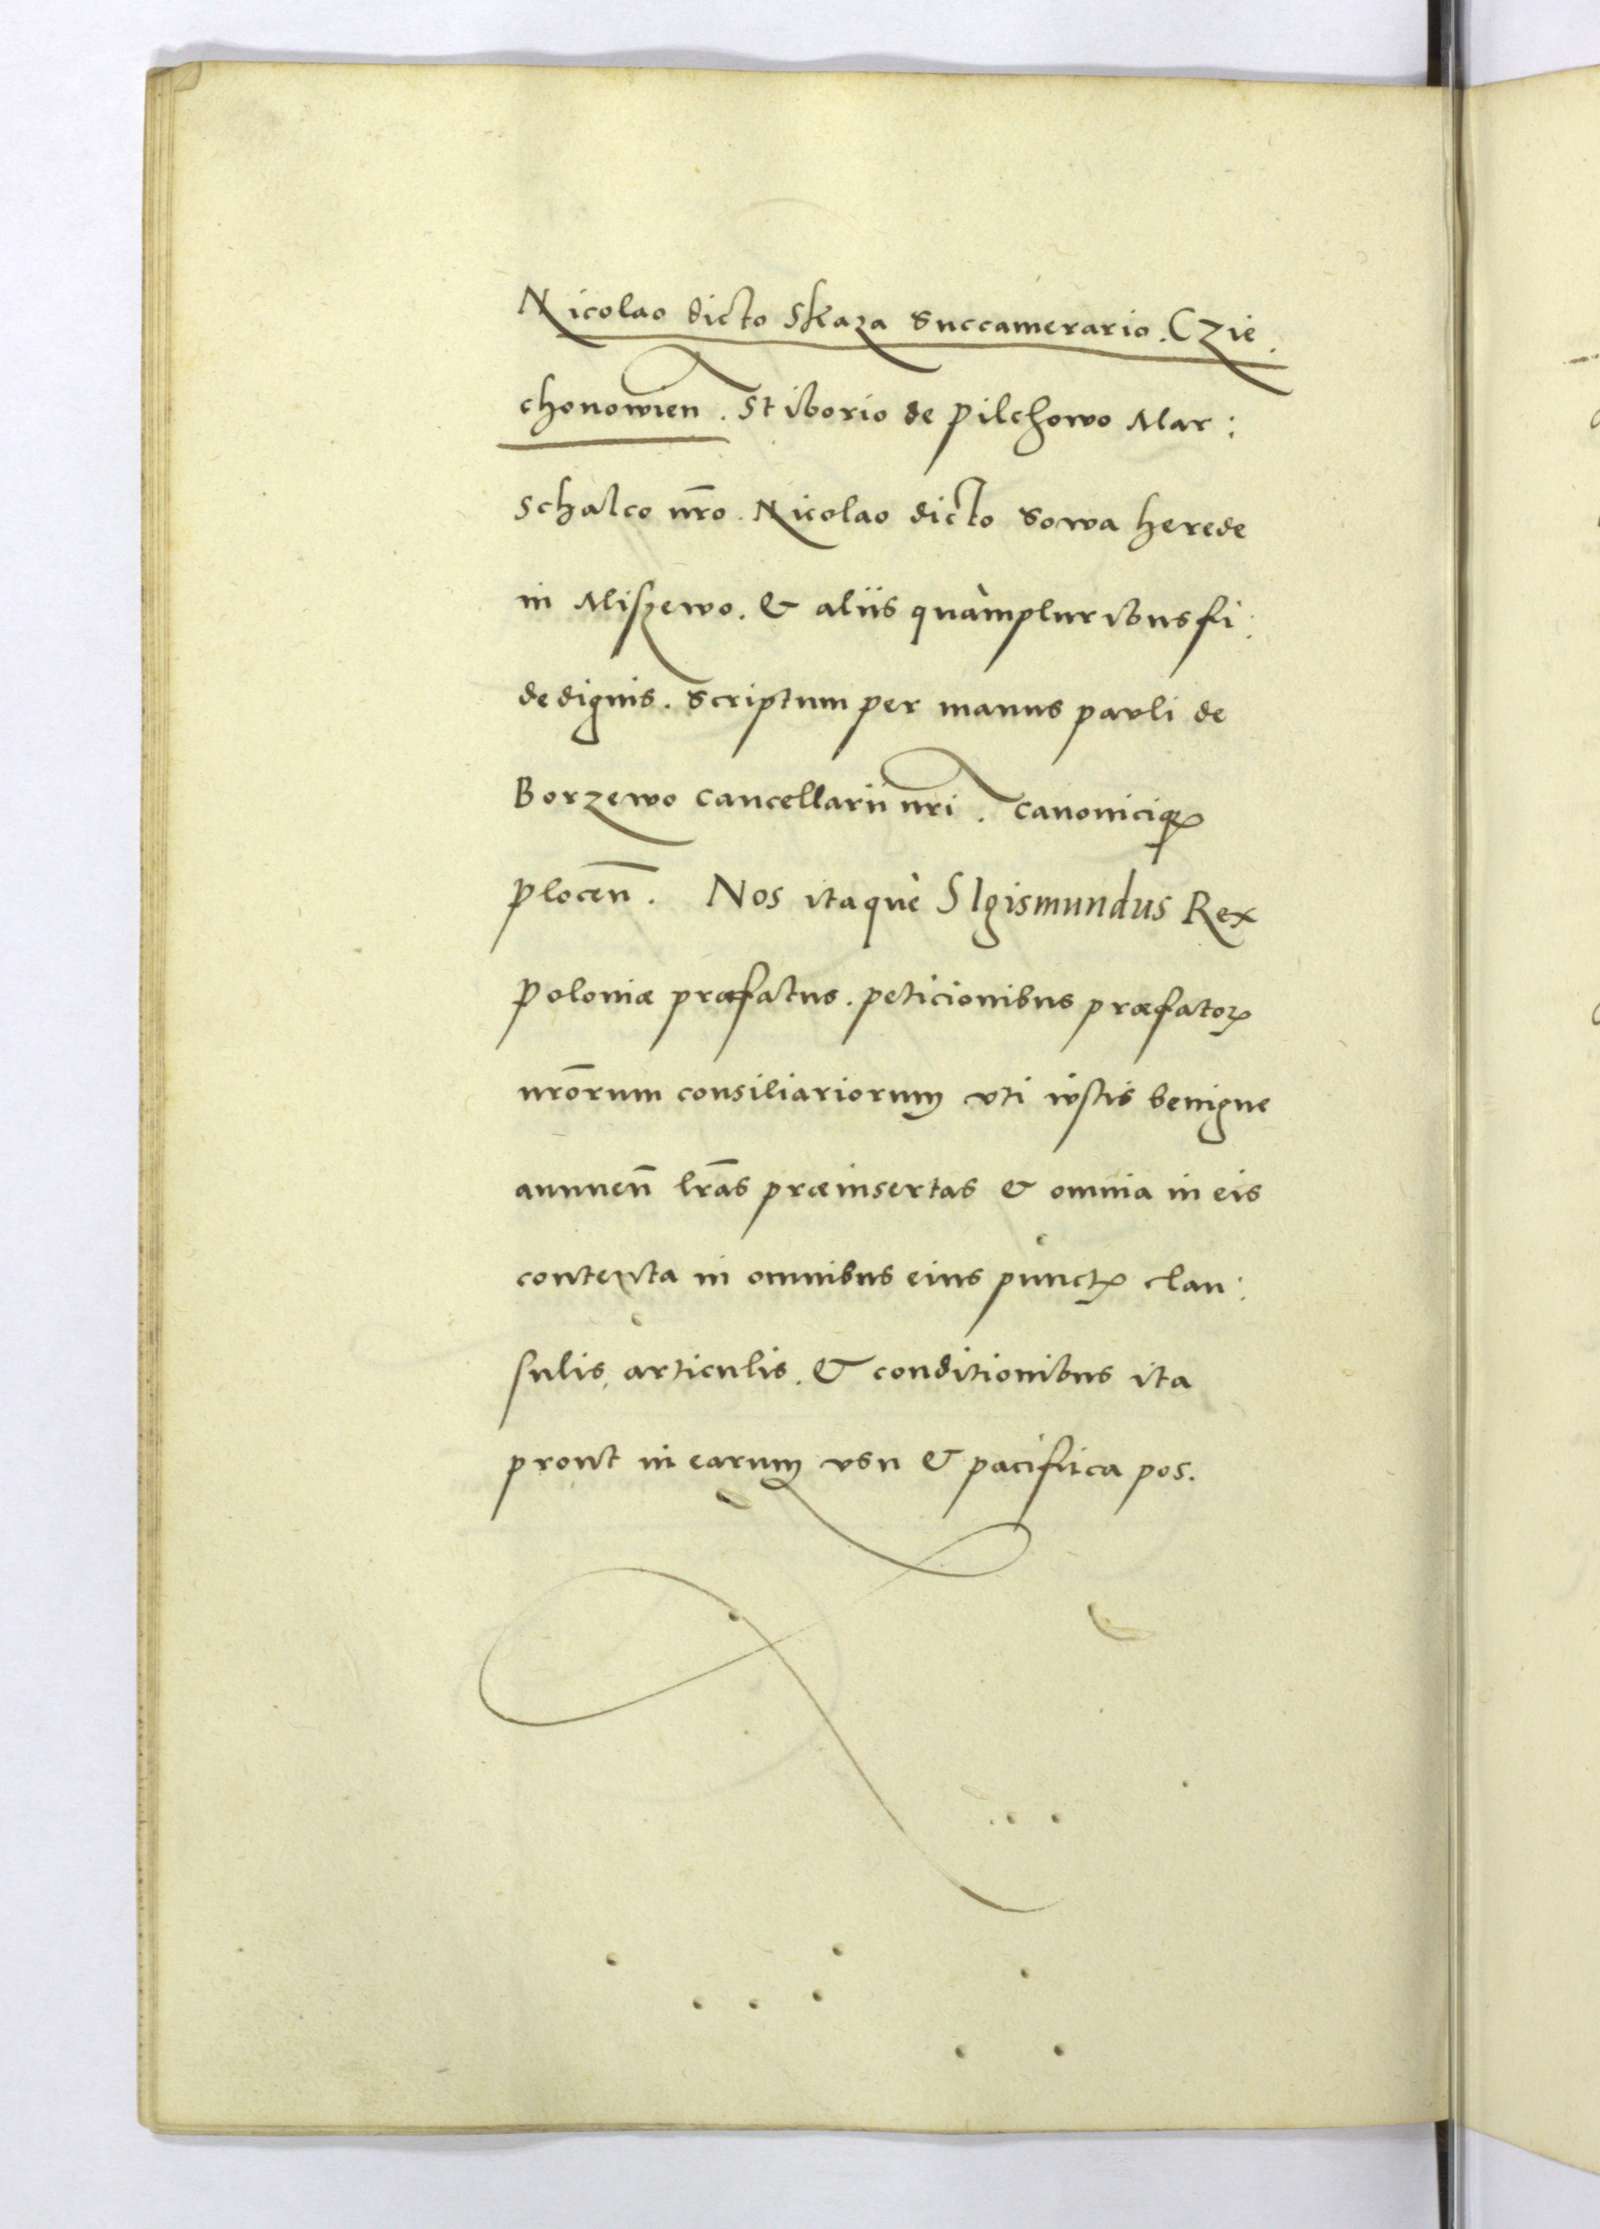 Nicolao dicto Skaza Succamerario. Czie.
chonowien. Stiborio de Pilchowo Mar:
schalco nr̃o. Nicolao dicto Sowa herede
in Miszewo. & aliis quàmpluribus fi:
dedignis. Scriptum per manus pauli de
Borzewo cancellarii nri. Canoniciqꝫ
Plocen̄. Nos itaquè SIgismundus Rex
Poloniæ præfatus. peticionibus præfatoꝝ
nr̃orum consiliariorum vti iustis benigne
annuen̄ lr̃as præinsertas & omnia in eis
contenta in omnibus eius punctꝭ clau:
sulis, articulis. & conditionibus ita
prout in earum vsu & pacifica pos.